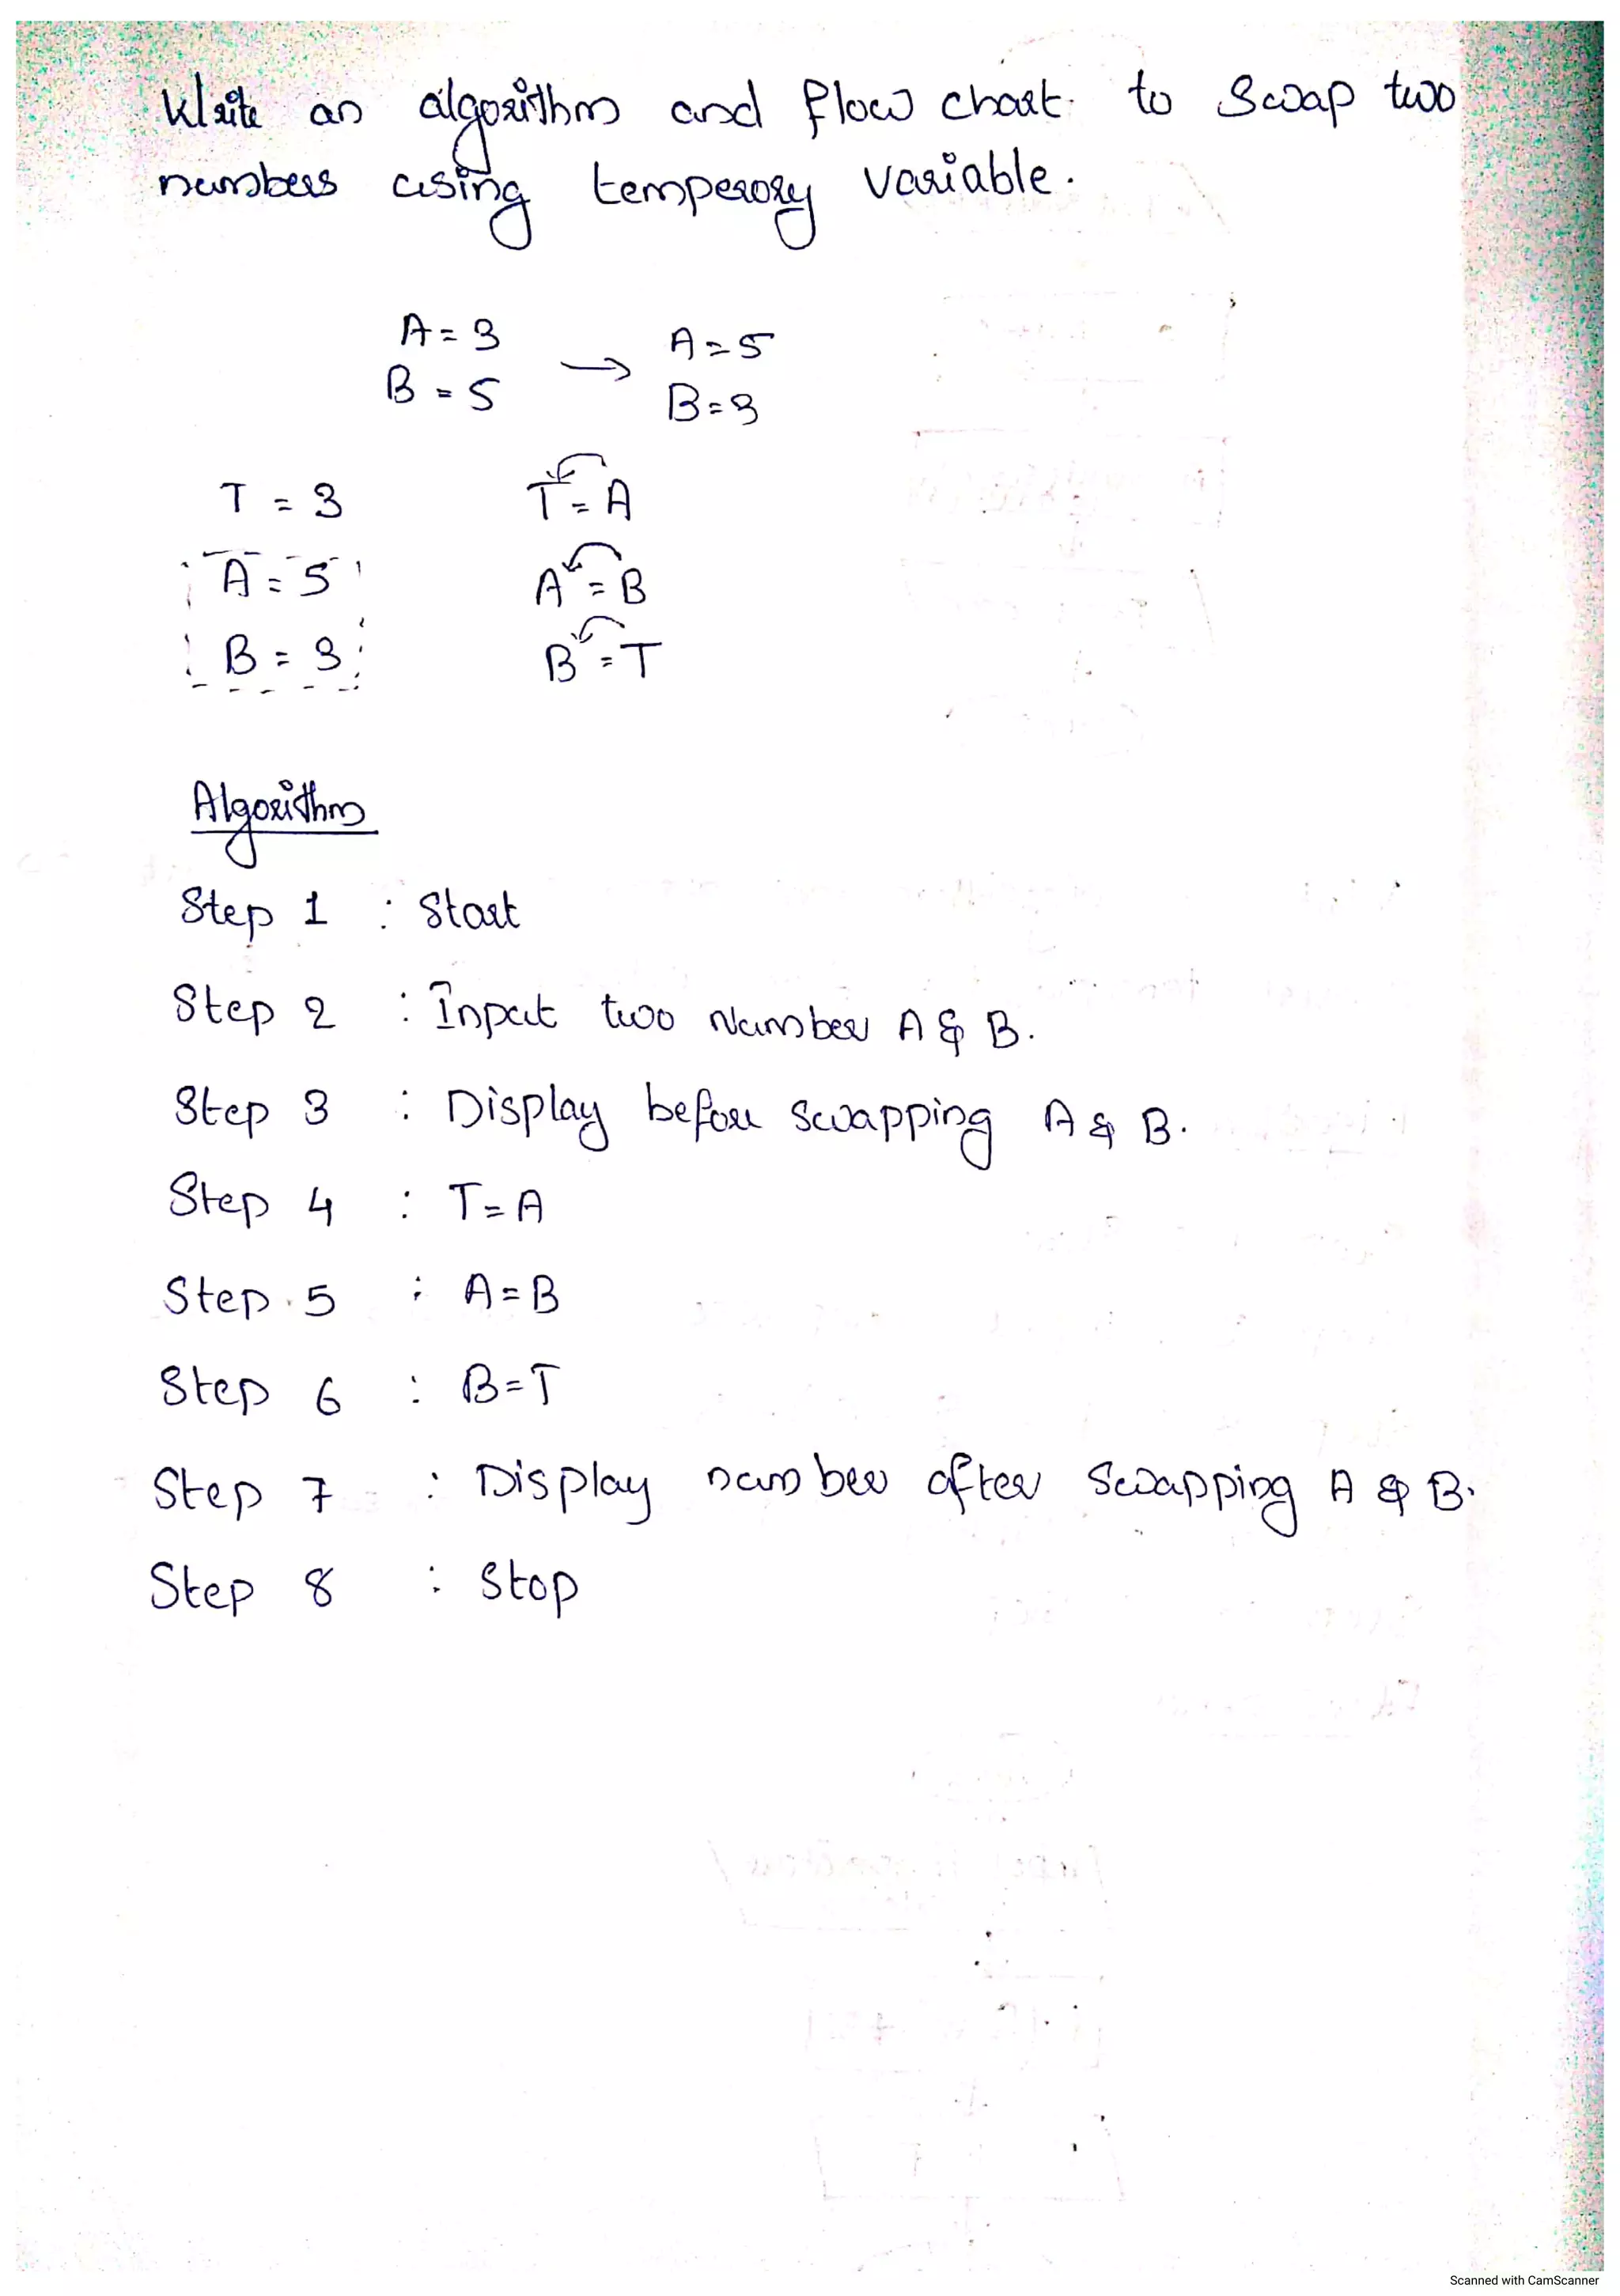 Write an algorithm and flow chart to Swap two
numbers using temperory variable.
A = 3 → A = 5
B = 5 B = 3
T = 3 T = A
A = 5 A = B
B = 3 B = T
Algorithm
Step 1 : Start
Step 2 : Input two Number A & B.
Step 3 : Display before swapping A & B.
Step 4 : T = A
Step 5 : A = B
Step 6 : B = T
Step 7 : Display number after Swapping A & B.
Step 8 : Stop
Scanned with CamScanner